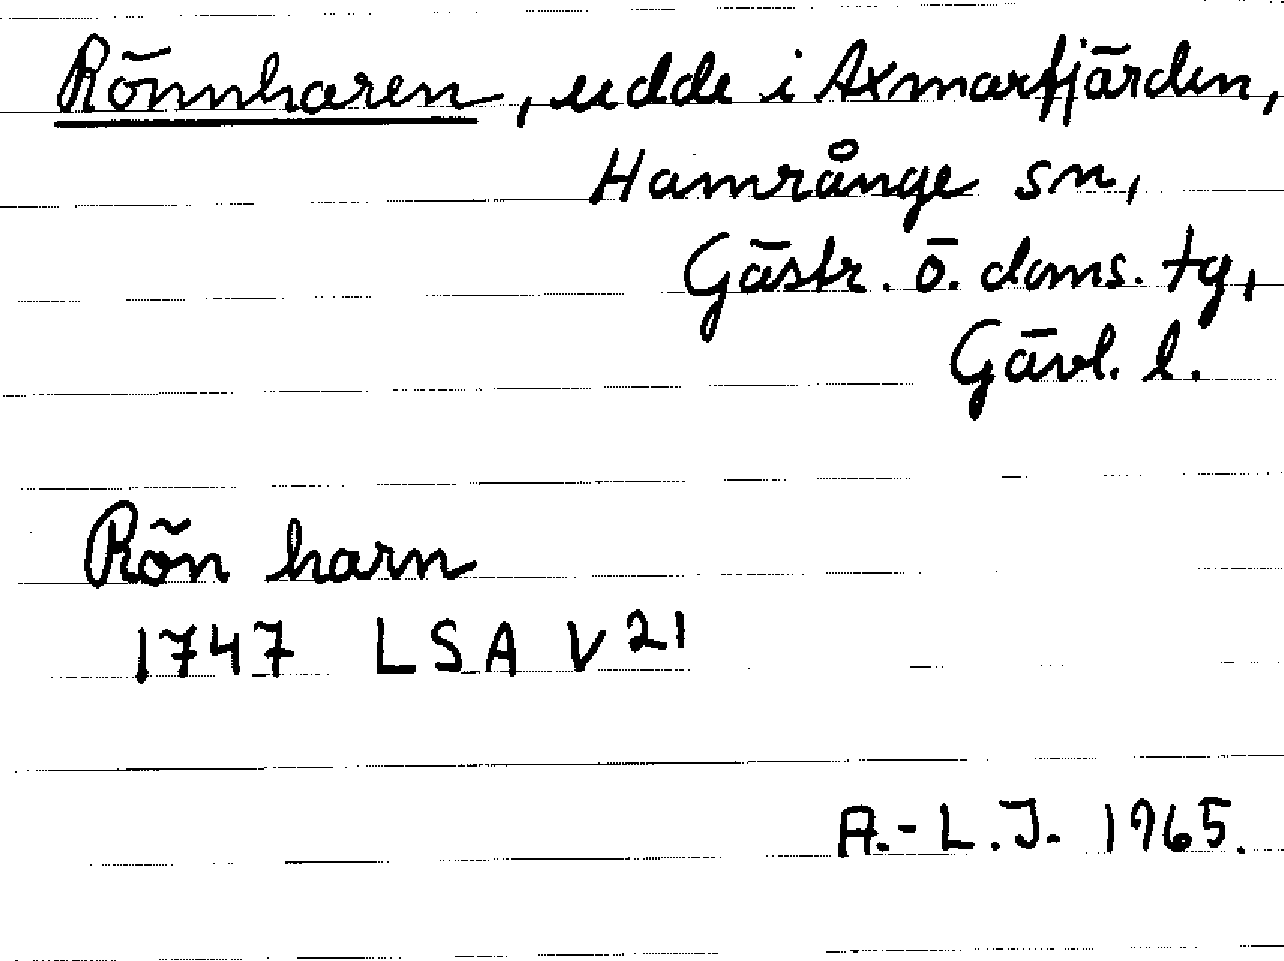 Rönnharen, udde i Axmarfjärden,
Hamrånge sn,
Gästr. ö. doms. tg,
Gävl. l.
Rön harn
1747 LSA V 21
A.-L.J. 1965.